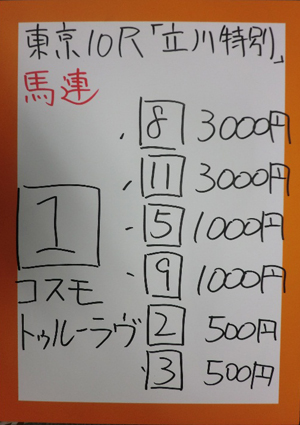 東京10R「立川特別」
馬連
1
コスモ
トゥルーラヴ
8 3000円
11 3000円
5 1000円
9 1000円
2 500円
3 500円